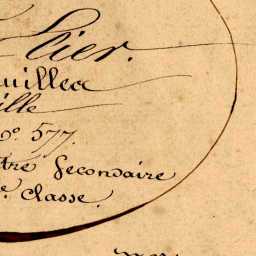 tier.
uillea
ille
N.º 577.
tré Secondaire
e. Classe.